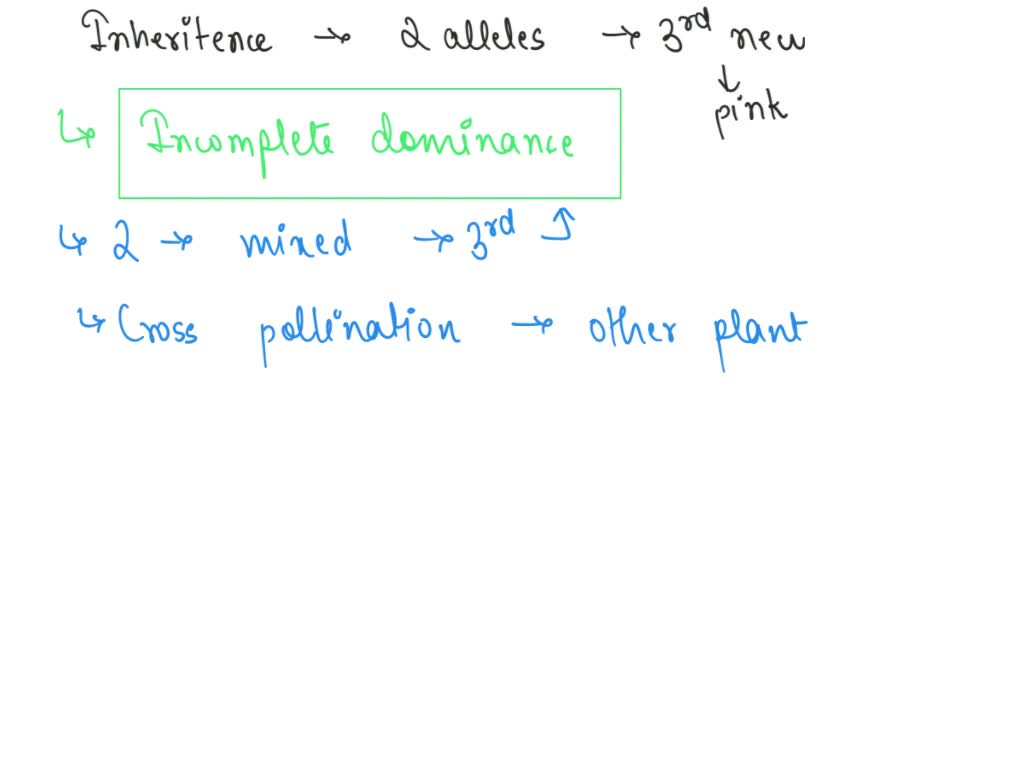 Inheritence → 2 alleles → 3rd new
↓
pink
↳ Incomplete dominance
↳ 2 → mixed → 3rd ↑
↳ Cross pollination → other plant